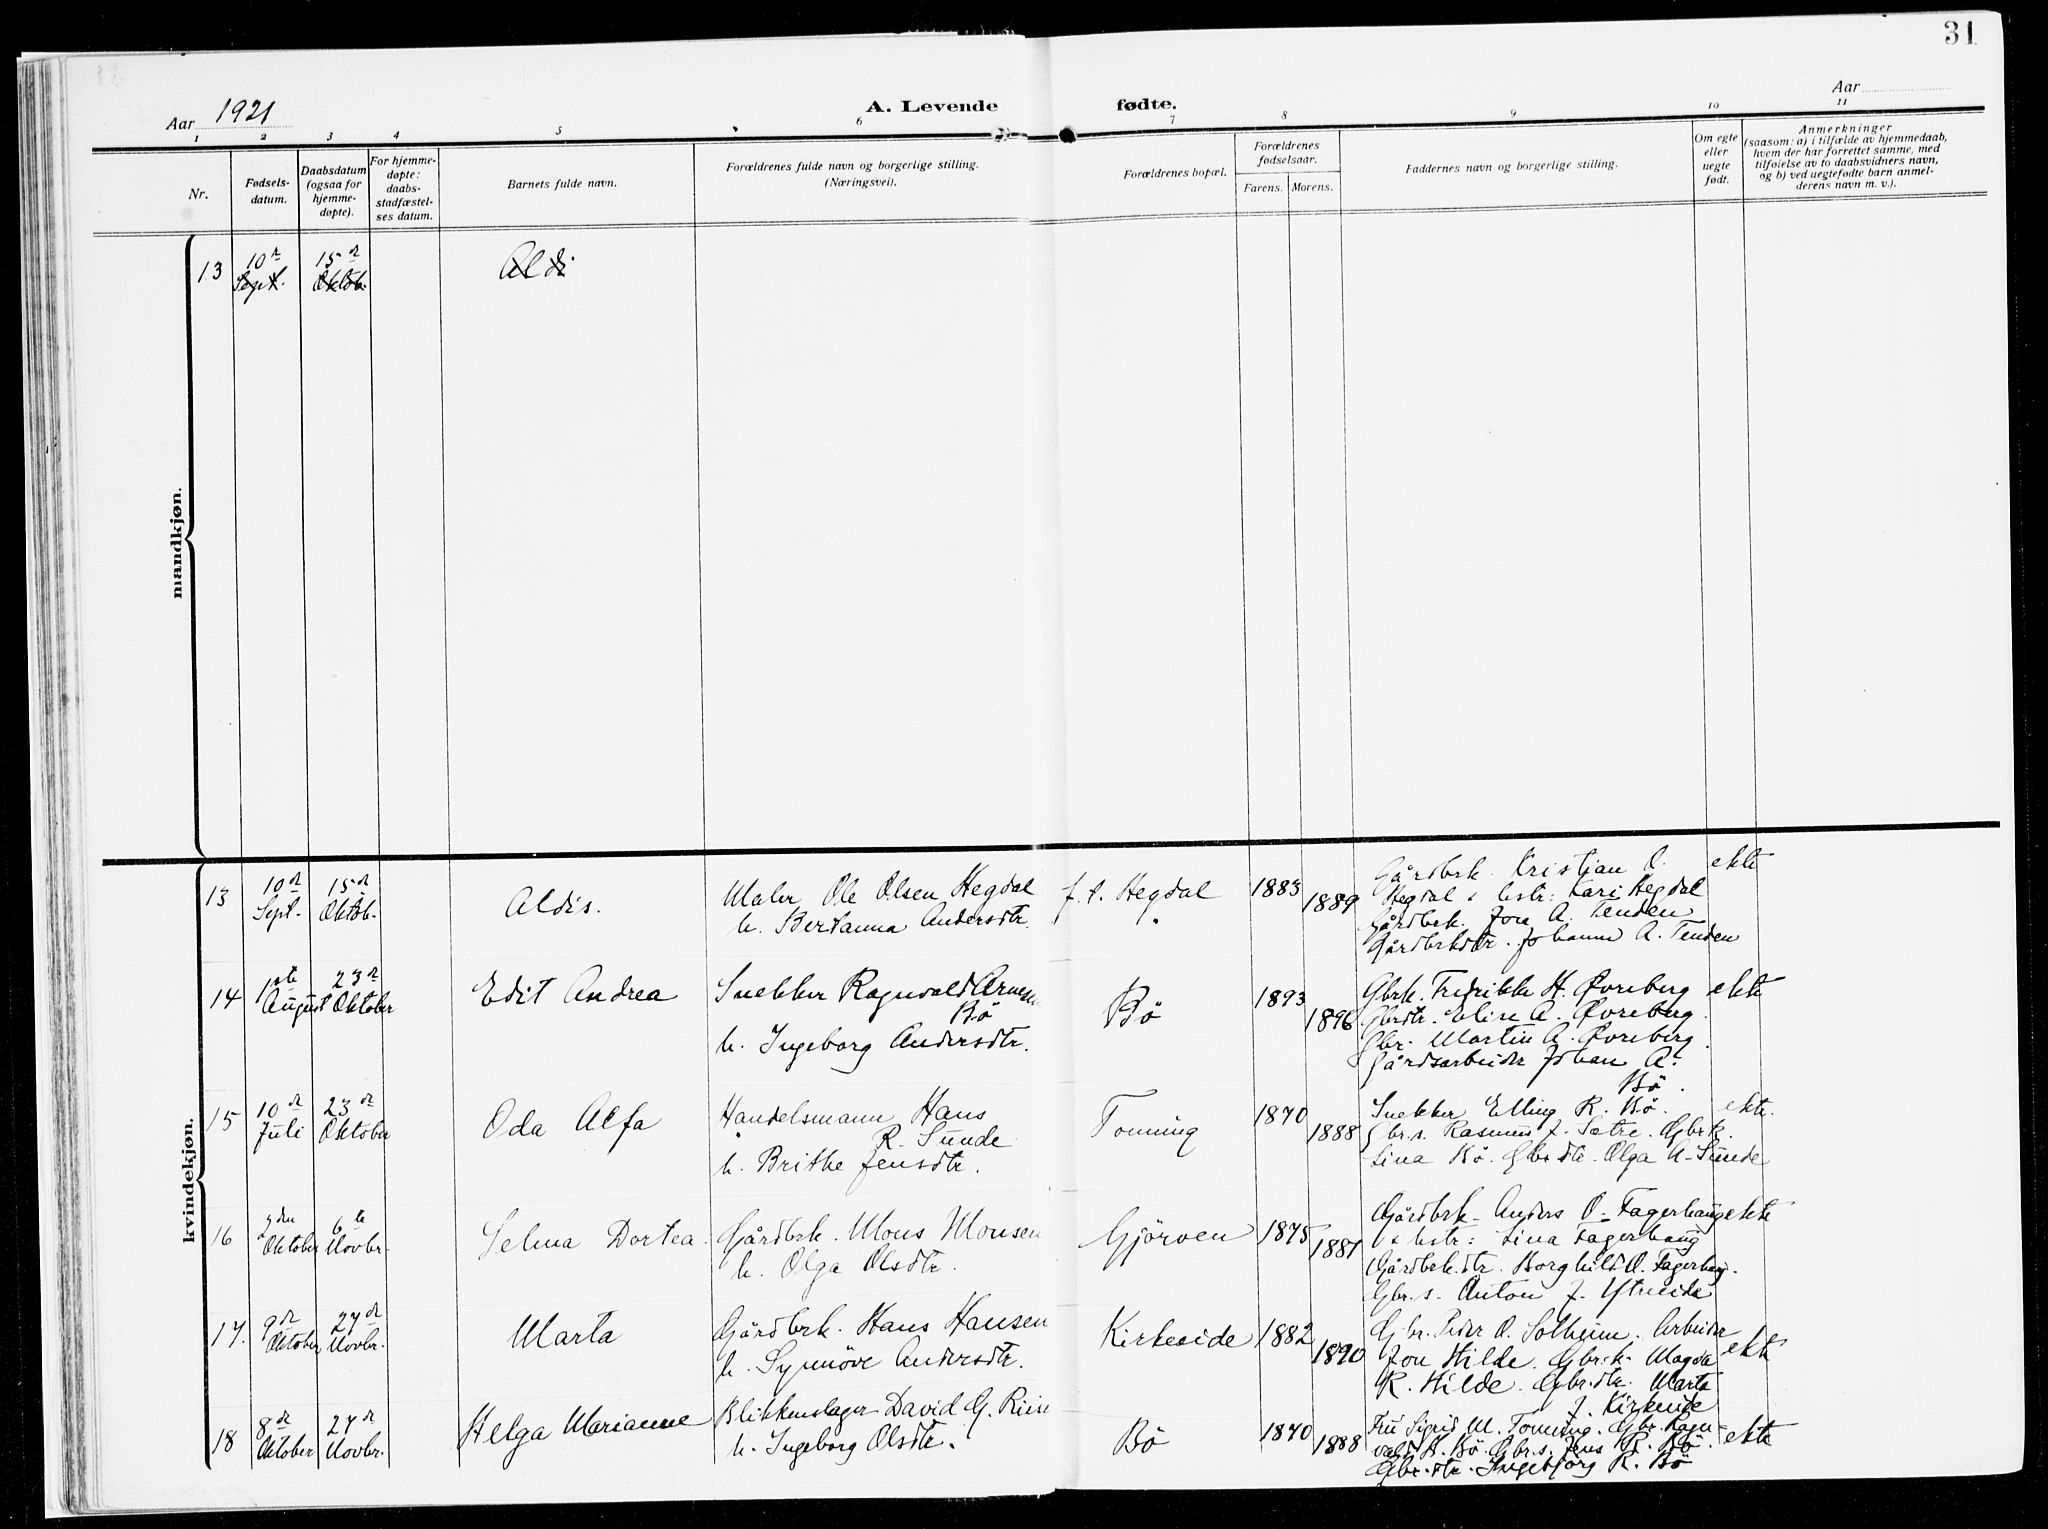 31
Aar 1921
A. Levende fødte.
Aar
1 2 3 4 5 6 7 8 9 10 11
Nr.
Fødsels-
datum.
Daabsdatum
(ogsaa for
hjemme-
døpte).
For hjemme-
døpte:
daabs-
stadfæstel-
ses datum.
Barnets fulde navn.
Forældrenes fulde navn og borgerlige stilling.
(Næringsvei).
Forældrenes bopæl.
Forældrenes
fødselsaar.
Farens. Morens.
Faddernes navn og borgerlige stilling.
Om egte
eller
uegte
født.
Anmerkninger
(saasom: a) i tilfælde av hjemmedaab,
hvem der har forrettet samme, med
tilføielse av to daabsvidners navn,
og b) ved uegtefødte barn anmel-
derens navn m. v.).
mandkjøn.
13 10de Sept. 15de Oktob. Aldi
kvindekjøn.
13 10de Sept. 15de Oktob. Aldis.
Maler Ole Olsen Hegdal
h. Bertanna Andersdtr.
f. t. Hegdal 1883 1889
Gårdbrk. Kristian O.
Hegdal & hstr: Kari Hegdal
Gårdbrk. Jon A. Tenden
Gårdbrkdtr. Johanne A. Tenden
ekte
14 1ste August 23de Oktober Edit Andrea
Snekker Ragnvald Arnesen
Bö
h. Ingeborg Andersdtr.
Bö 1893 1896
Gbrk. Fredrikke H. Øvreberg
Gbrdtr. Elise A. Øvreberg.
Gbr. Martin A. Øvreberg.
Gårdsarbeider Johan A.
Bö.
ekte
15 10de Juli 23de Oktober Oda Alfa
Handelsmann Hans
R. Sunde
h. Brithe Jensdtr.
Tonning 1870 1888
Snekker Elling R. Bö.
Gbr.s. Rasmus J. Sætre. Gbrk.
Lina Bö. Gbrdtr. Olga A. Sunde
ekte.
16 2den Oktober 6te Novbr. Selma Dortea.
Gårdbrk. Mons Monsen
h. Olga Olsdtr.
Gjörven 1875 1881
Gårdbrk. Anders O. Fagerhaug
& hstr: Lina Fagerhaug
Gårdbrk.dtr. Borghild O. Fagerhaug.
Gbr.s. Anton J. Ytreeide
ekte
17. 9de Oktober 27de Novbr. Marta
Gårdbrk. Hans Hansen
h. Synnöve Andersdtr.
Kirkeeide 1882 1890
Gbr. Peder O. Solheim. Arbeider
Jon Hilde. Gbr.k. Magda
R. Hilde. Gbr.dtr. Marta
J. Kirkeeide
ekte
18 8de Oktober 27de Novbr. Helga Marianne
Blikkenslager David G. Riise
h. Ingeborg Olsdtr.
Bö 1870 1888
Fru Sigrid M. Tonning. Gbr. Ragn-
vald K. Bö. Gbr.s. Jens R. Bö.
Gbr.dtr. Ingebjørg R. Bö
ekte